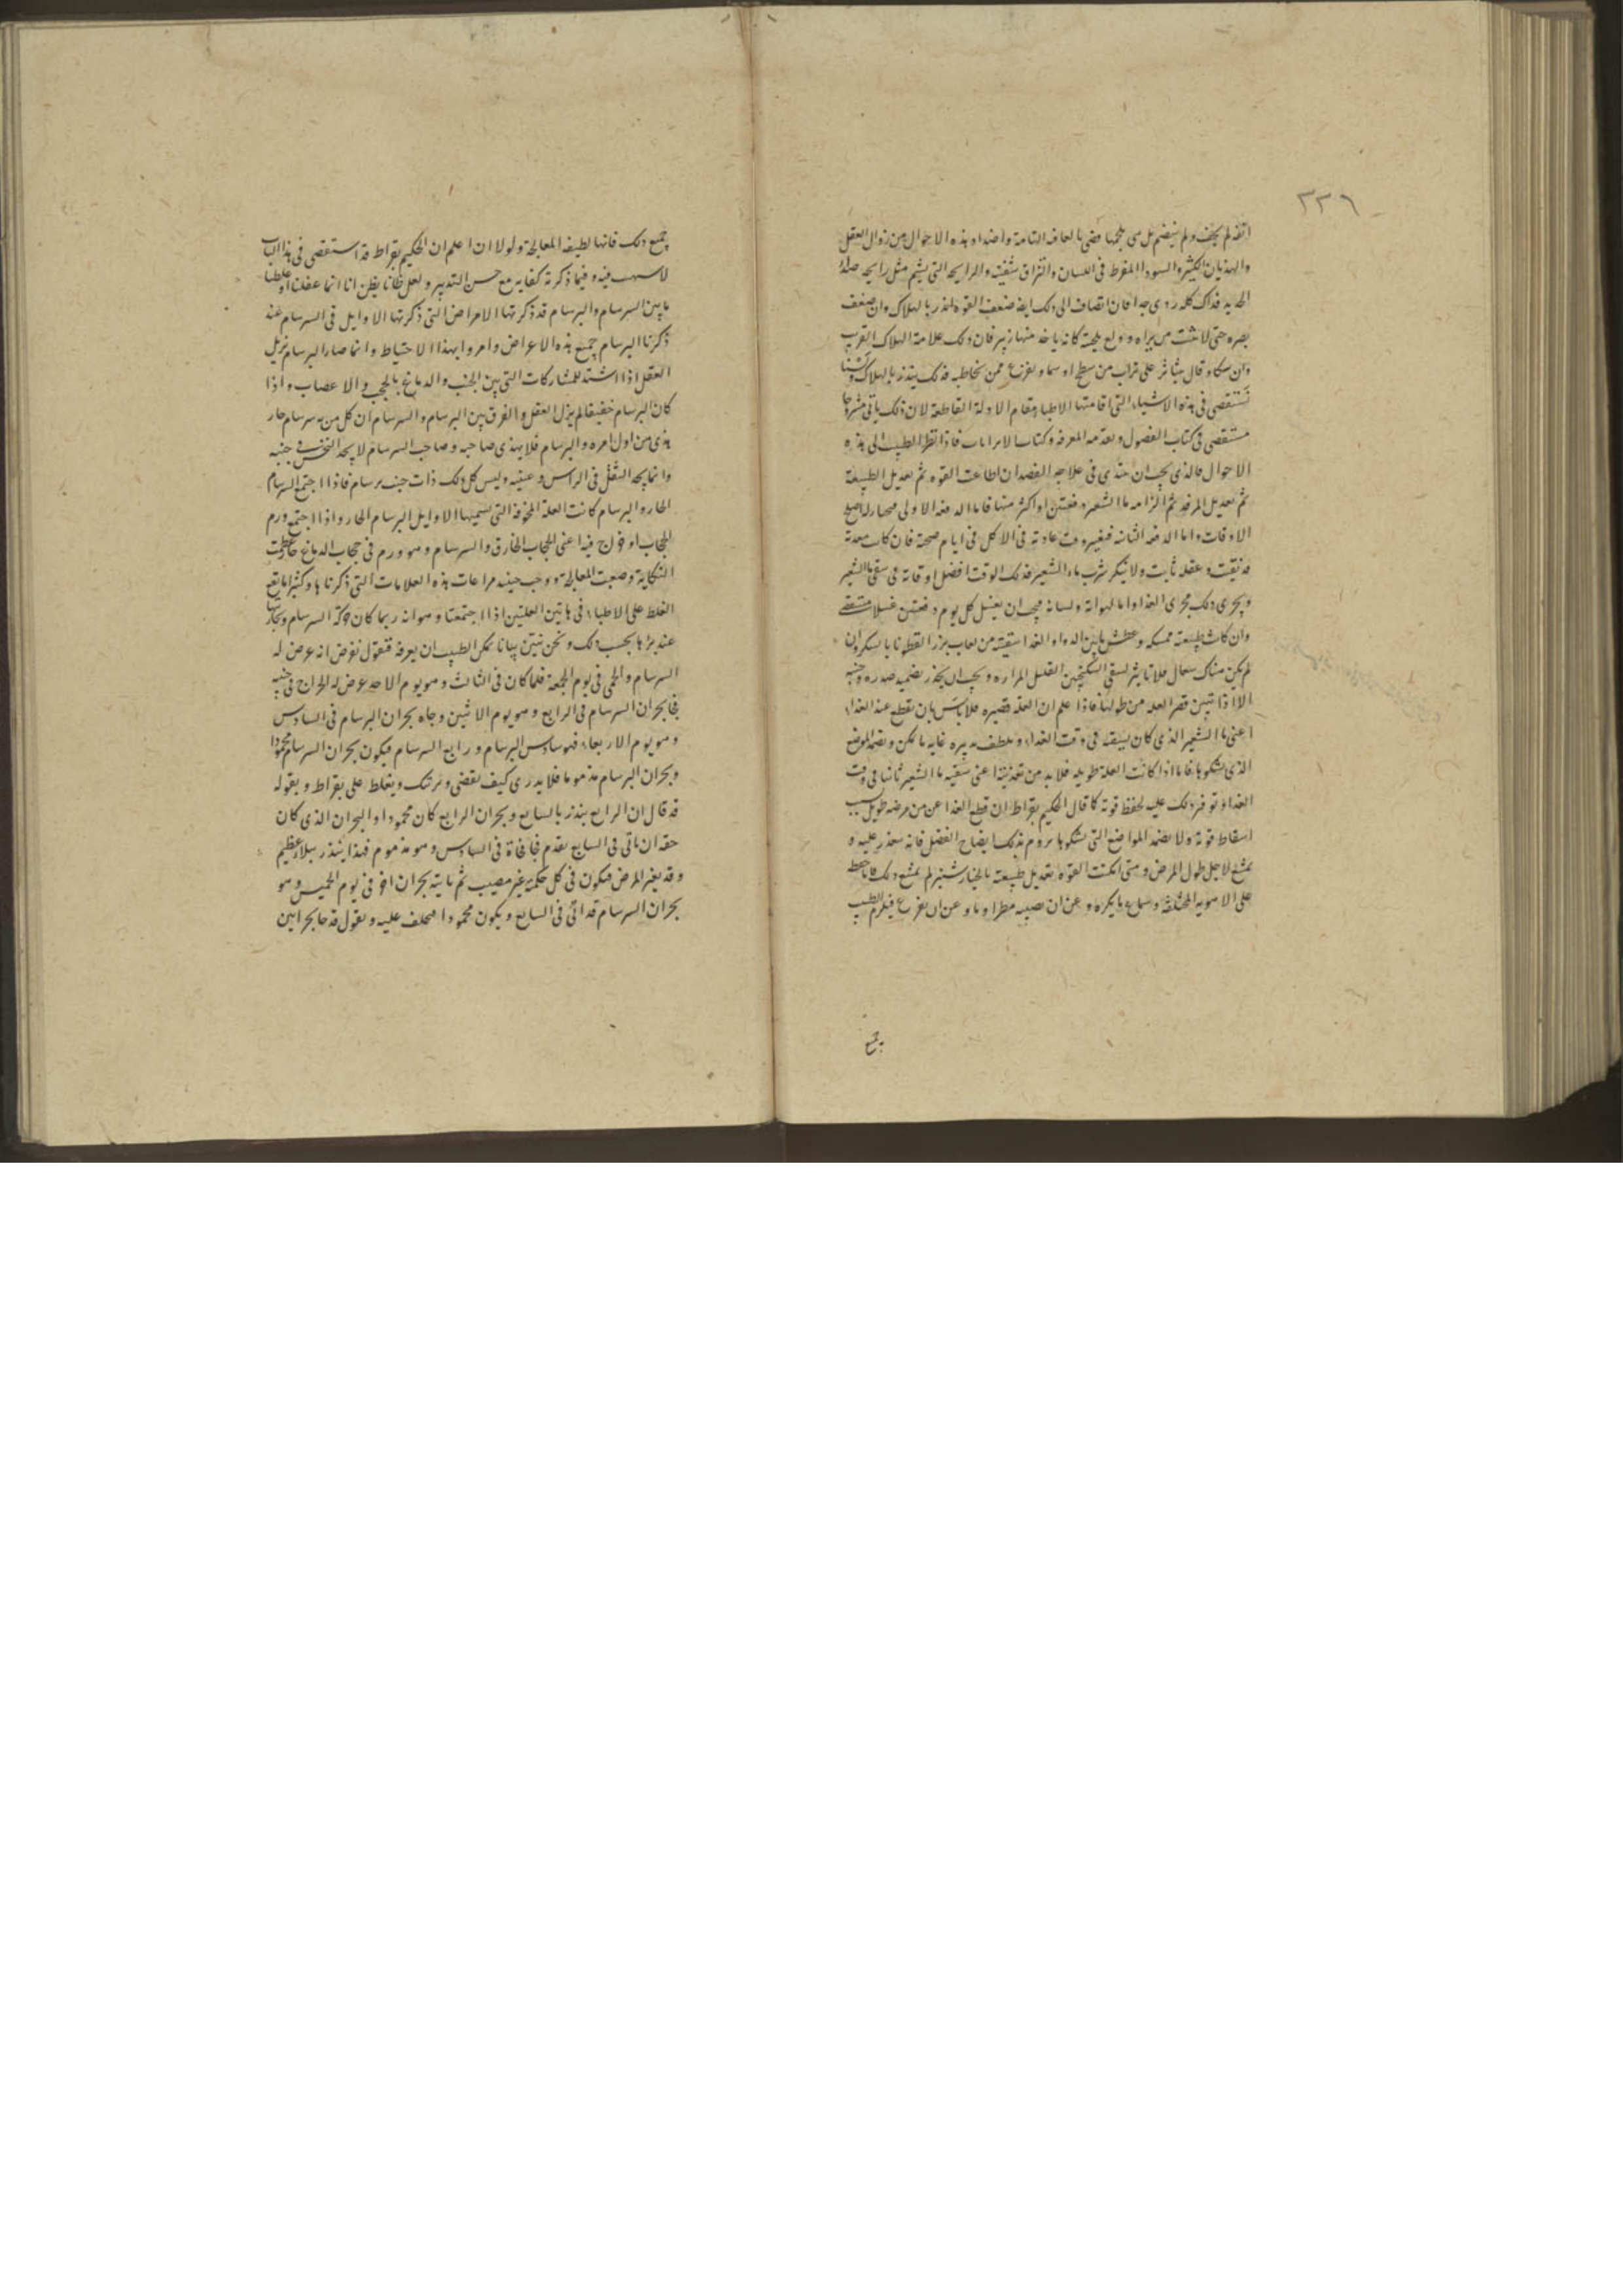 ٢٢٦
والهذيان الكثير والسواد المفرط فى اللسان والتزاق شفتيه والرايحه التى يشم مثل رايحه
الحديد فذاك كله ردى جدا فان انضاف الى ذلك ايضا ضعف القوه انذر بالهلاك وان ضعف
بصره حتى لا يثبت من يراه وولع بلحيته كانه ياخذ منها زبير فان ذلك علامة الهلاك القريب
وان شكا وقال يتناثر على تراب من سطح او سما ويفزع ممن يخاطبه فذلك ينذر بالهلاك ولسنا
نستقصى فى هذه الاشياء التى اقامتها الاطبا مقام الادلة القاطعة لان ذلك ياتى مشروحا
مستقصى فى كتاب الفصول وتقدمه المعرفه وكتاب فاذا نظر الطبيب الى هذه
الاحوال فالذى يجب ان يبتدى فى علاجه الفصد ان اطاعت القوه ثم تعديل الطبيعة
ثم تعديل المرقد ثم الزامه ماء الشعير دفعتين او اكثر منها فاما الدفعه الاولى فيختار له اصلح
الاوقات واما الدفعه الثانيه فبغير وقت عادته فى الاكل فى ايام صحته فان كانت معدته
قد نقيت وعقله ثابت ولا ينكر شرب ماء الشعير فذلك الوقت افضل اوقاته فى سقى ماء الشعير
ويجرى ذلك مجرى الغذا واما لهواته ولسانه فيجب ان يغسل كل يوم دفعتين غسلا مستقصى
وان كانت طبيعته ممسكه وعطش ما بين الدواء والغذا سقيته من لعاب بزر القطونا بالسكر وان
لم يكن هناك سعال فلا تاثير لسقى السكنجبين القليل المراره ويجب ان يحذر تضميد صدره وجنبه
الا اذا تبين قصر العله من طولها فاذا علم ان العله قصيره فلا باس بان تقطع عنه الغذاء
اعنى ماء الشعير الذى كان يسقه فى وقت الغداء ويلطف تدبيره غايه ما يمكن ويضمد الموضع
الذى يشكوه فاما اذا كانت العلة طويله فلا بد من تغذيته اعنى سقيه ماء الشعير ثانيا فى وقت
الغداء وتوفر ذلك عليه لحفظ قوته كما قال الحكيم بقراط ان قطع الغذا عن من مرضه طويل سبب
اسقاط قوته ولا يضمد المواضع التى يشكوها يروم بذلك ايضاح الفضل فانه يتعذر عليه و
يمتنع لاجل طول المرض ومتى امكنت القوه تعديل طبيعته بالخيار شنبر لم يمتنع ذلك
على الاهويه المختلفة وسماع ما يكره وعن ان يصيبه مطرا وماء وعن ان يفزع فيلزم الطبيب
جميع
جميع ذلك فانها لطيفه المعالجة ولولا ان اعلم ان الحكيم بقراط قد استقصى فى هذا الباب
لاسهبت فيه وفيما ذكرته كفايه مع حسن التدبير ولعل ظانا يظن انا انما غفلنا او غلطنا
ما بين السرسام والبرسام قد ذكرتها الامراض التى ذكرتها الاوايل فى السرسام عند
ذكرنا البرسام جميع هذه الاعراض وامروا بهذا الاحتياط وانما صار البرسام يزيل
العقل اذا اشتد للمشاركات التى بين الجنب والدماغ بالحجب والاعصاب واذا
كان البرسام خفيفا لم يزل العقل والفرق بين البرسام والسرسام ان كل من به سرسام حار
هذى من اول امره والبرسام فلا يهذى صاحبه وصاحب السرسام لا يجد النخس فى جنبه
وانما يجد الثقل فى الراس وعينيه وليس كل ذلك ذات جنب برسام فاذا اجتمع السرسام
الحار والبرسام كانت العلة المخوفة التى يسميها الاوايل البرسام الحار واذا اجتمع ورم
الحجاب او خراج فيه اعنى الحجاب الخارق والسرسام وهو ورم فى حجاب الدماغ حار عظمت
النكاية وصعبت المعالجة ووجب حينئذ مراعات هذه العلامات التى ذكرناها وكثيرا ما يقع
الغلط على الاطباء فى هاتين العلتين اذا اجتمعتا وهو انه ربما كان حركة السرسام
بحسب ذلك ونحن نبين بيانا يمكن الطبيب ان يعرفه فنقول نفرض انه عرض له
السرسام والحمى فى يوم الجمعة فلما كان فى الثالث وهو يوم الاحد عرض له الخراج فى جنبه
فجا بحران السرسام فى الرابع وهو يوم الاثنين وجاه بحران البرسام فى السادس
وهو يوم الاربعاء فهو سادس البرسام ورابع السرسام فيكون بحران السرسام محمودا
وبحران البرسام مذموما فلا يدرى كيف يقضى ويرتبك ويغلط على بقراط ويقوله
قد قال ان الرابع ينذر بالسابع وبحران الرابع كان محمودا والبحران الذى كان
حقه ان ياتى فى السابع تقدم فجا فجاة فى السادس وهو مذموم فهذا ينذر ببلاء عظيم
وقد يغير المرض فيكون فى كل حكمه غير مصيب ثم ياتيه بحران اخر فى يوم الخميس وهو
بحران السرسام قد اتى فى السابع ويكون محمودا فيختلف عليه ويقول قد جا بحرانين